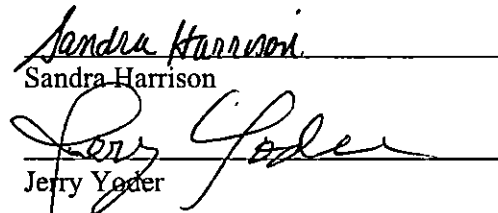 Sandra Harrison
Sandra Harrison
Jerry Yoder
Jerry Yoder